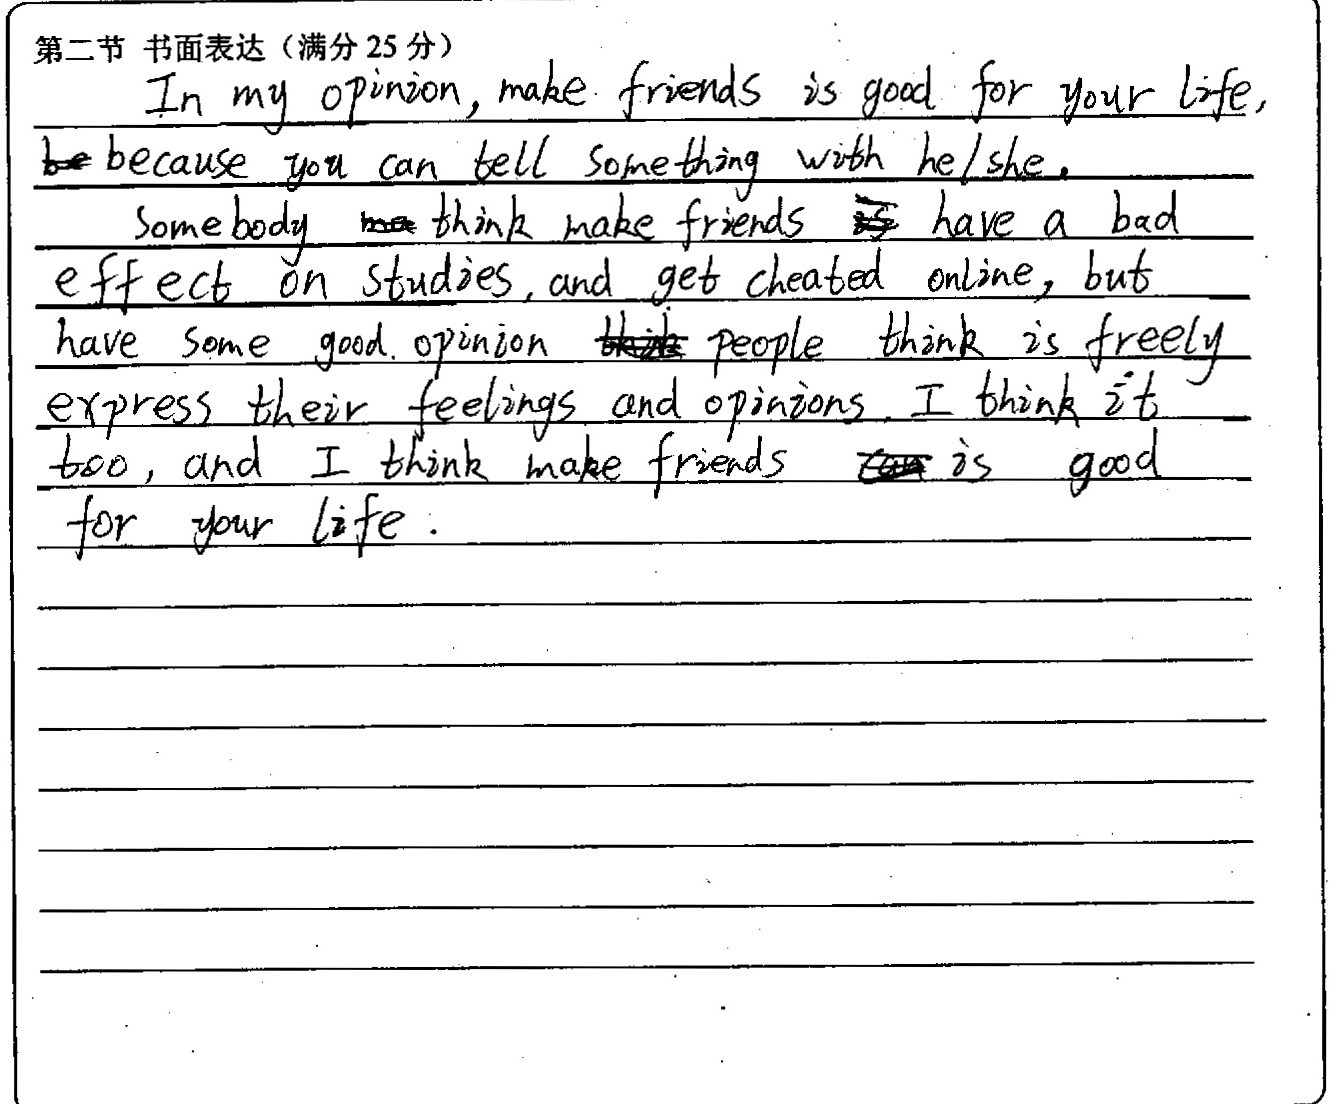 第二节 书面表达（满分 25 分）
In my opinion, make friends is good for your life,
because you can tell something with he/she.
Somebody think make friends have a bad
effect on studies, and get cheated online, but
have some good opinion people think is freely
express their feelings and opinions. I think it
too, and I think make friends is good
for your life.